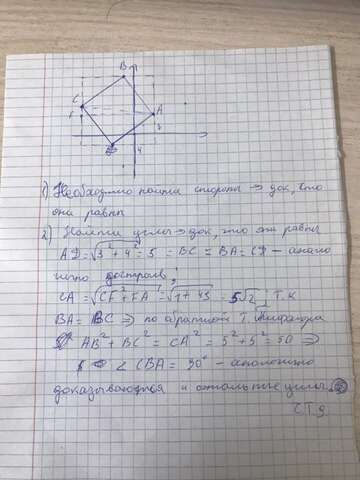 B
C
A
1) Необходимо найти стороны → док, что
они равны
2) Найти углы → док, что они равны
AD = √3² + 4² = 5 = BC = BA = CD – анало
гично достроив;
CA = √CF² + FA² = √1 + 49 = 5√2; т.к
BA = BC ⇒ по обратной Т. Пифагора
AB² + BC² = CA² = 5² + 5² = 50 ⇒
∠CBA = 90° – аналогично
доказываются и остальные углы.
ЧТД